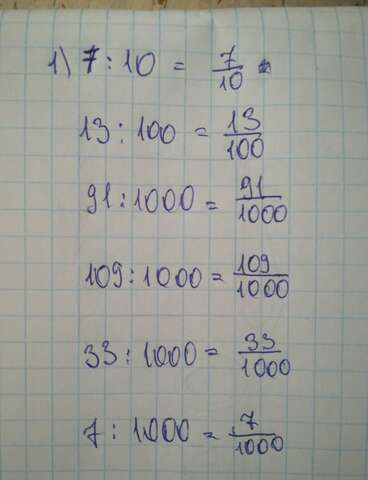 1) 7 : 10 = 7/10
13 : 100 = 13/100
91 : 1000 = 91/1000
109 : 1000 = 109/1000
33 : 1000 = 33/1000
7 : 1000 = 7/1000